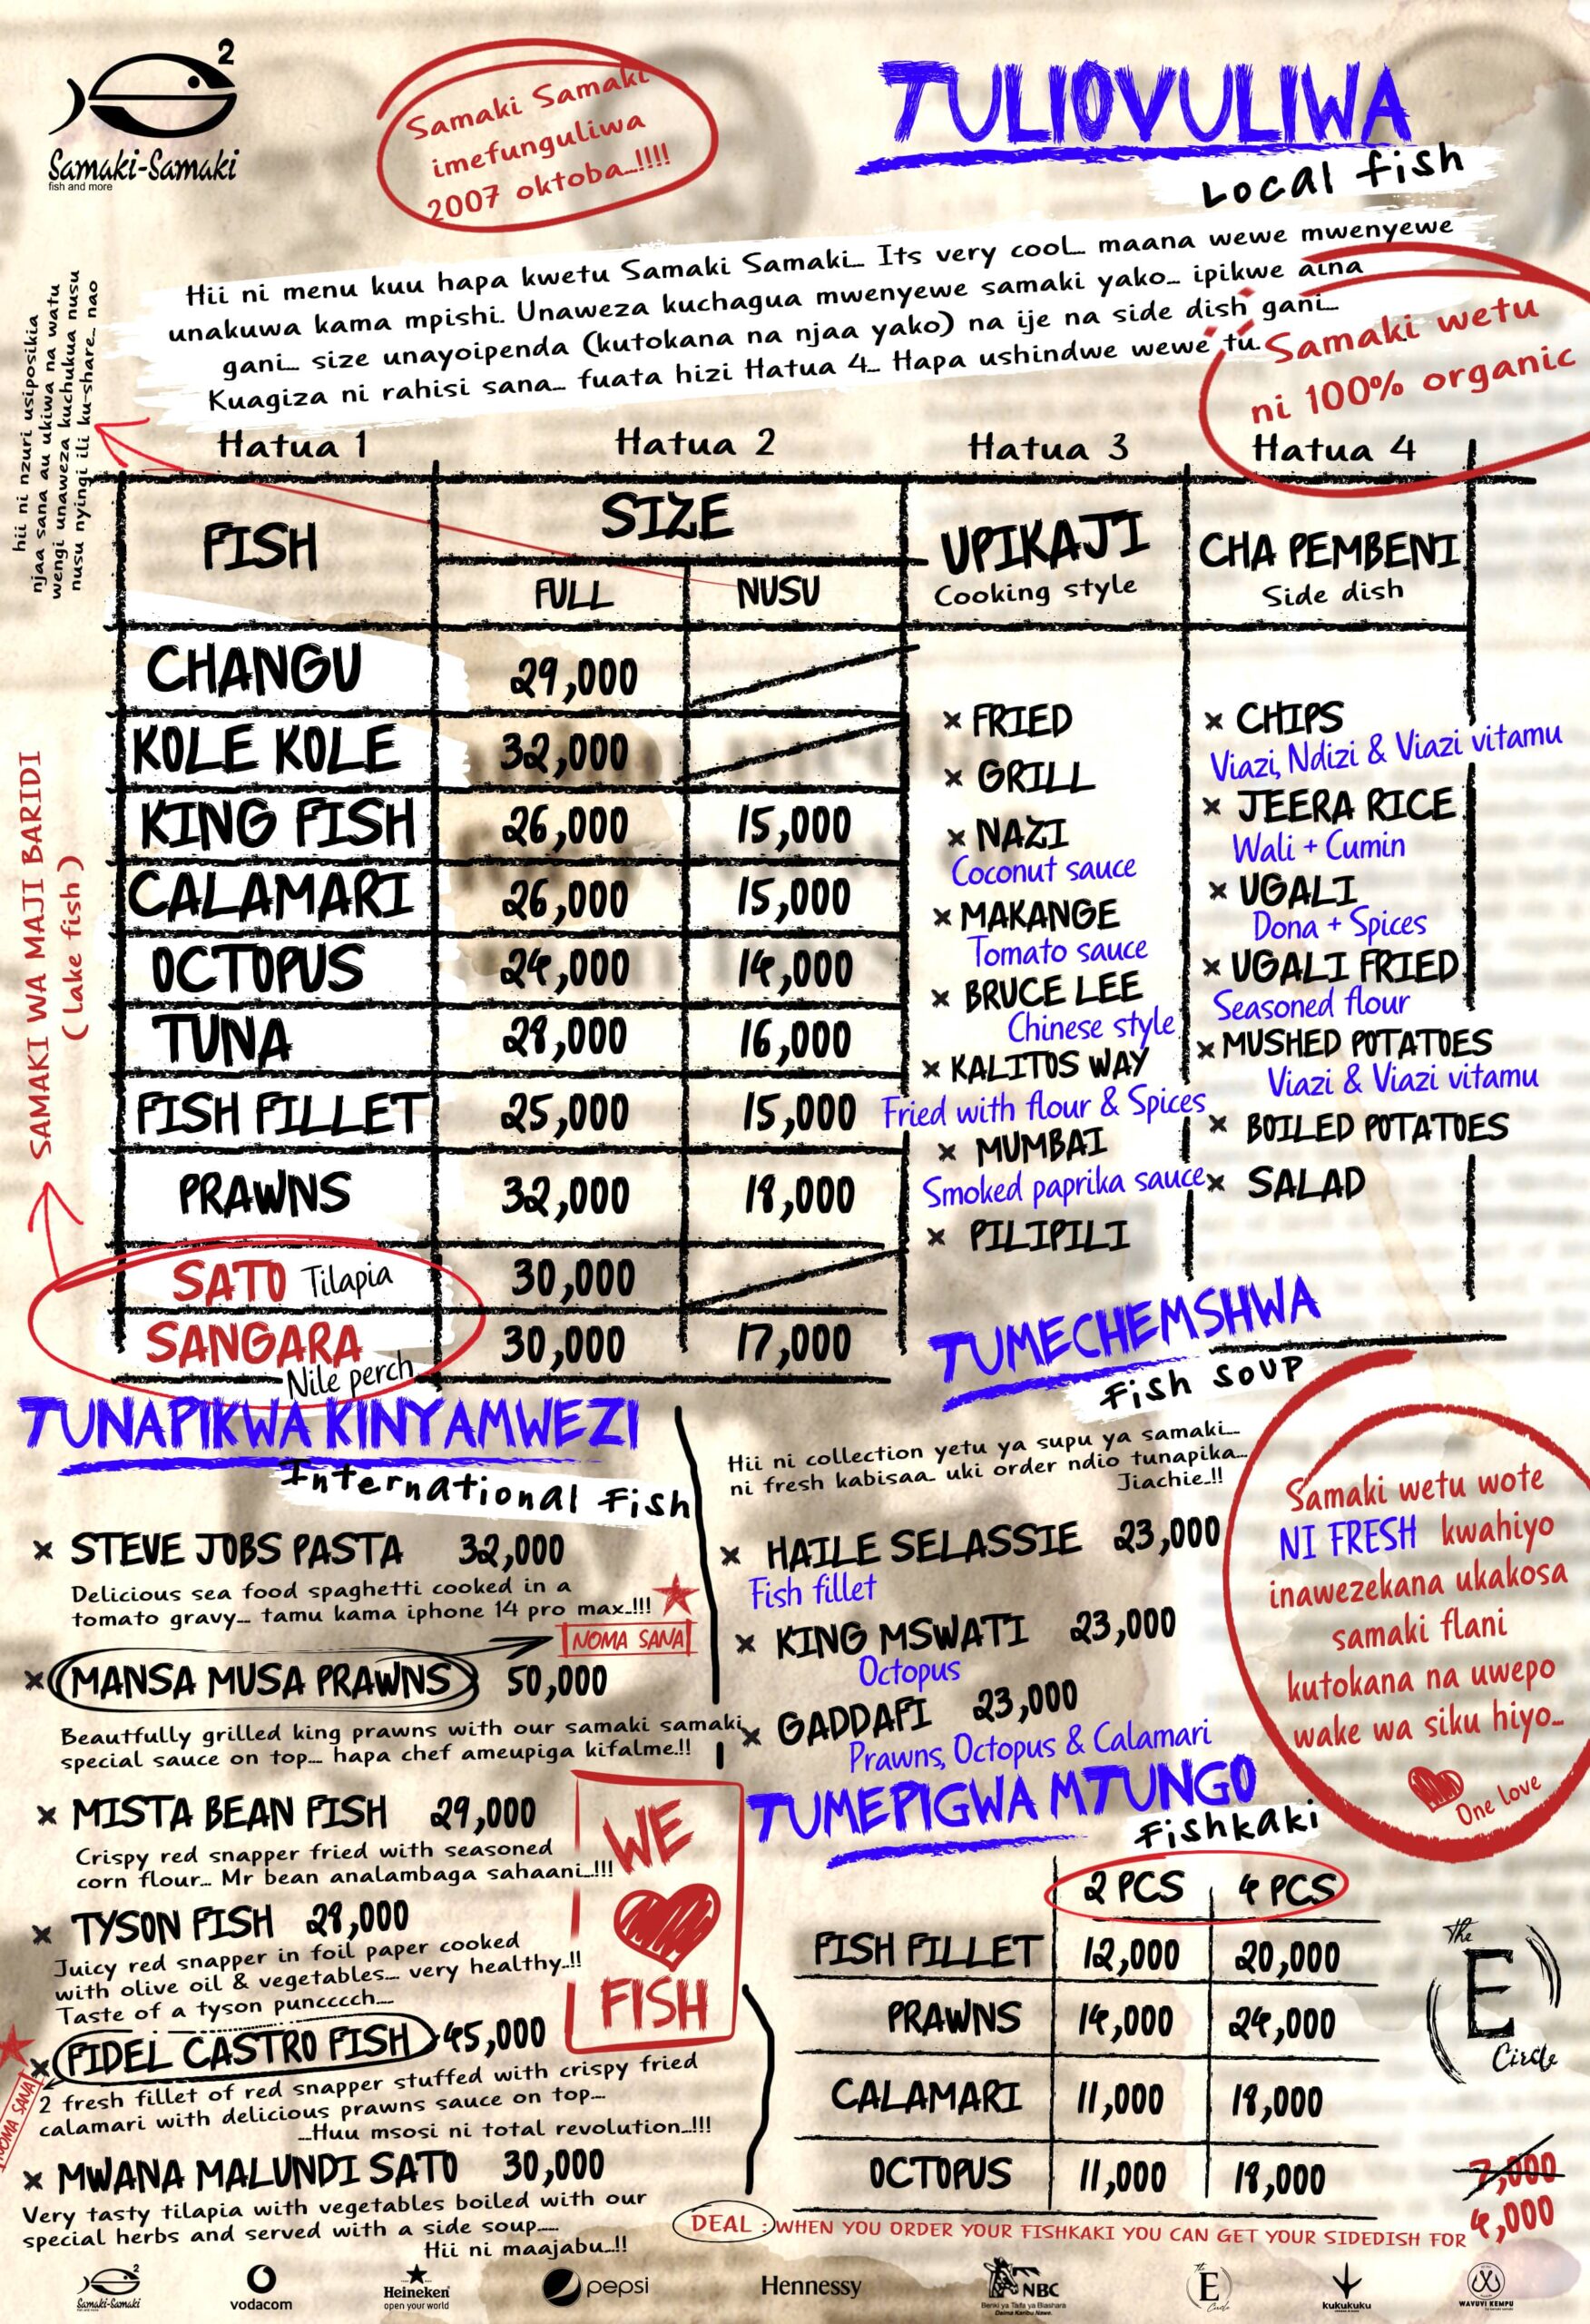 2
Samaki-Samaki
fish and more
Samaki Samaki
imefunguliwa
2007 oktoba...!!!!
TULIOVULIWA
Local fish
Hii ni menu kuu hapa kwetu Samaki Samaki... Its very cool... maana wewe mwenyewe
unakuwa kama mpishi. Unaweza kuchagua mwenyewe samaki yako... ipikwe aina
gani... size unayoipenda (kutokana na njaa yako) na ije na side dish gani...
Kuagiza ni rahisi sana... fuata hizi Hatua 4... Hapa ushindwe wewe tu.
Samaki wetu
ni 100% organic
hii ni nzuri usiposikia
njaa sana au ukiwa na watu
wengi unaweza kuchukua nusu
nusu nyingi ili ku-share... nao
Hatua 1 Hatua 2 Hatua 3 Hatua 4
FISH SIZE UPIKAJI CHA PEMBENI
FULL NUSU Cooking style Side dish
CHANGU 29,000
KOLE KOLE 32,000
KING FISH 26,000 15,000
CALAMARI 26,000 15,000
OCTOPUS 24,000 14,000
TUNA 28,000 16,000
FISH FILLET 25,000 15,000
PRAWNS 32,000 18,000
SATO Tilapia 30,000
SANGARA 30,000 17,000
Nile perch
SAMAKI WA MAJI BARIDI
( Lake fish )
x FRIED
x GRILL
x NAZI
Coconut sauce
x MAKANGE
Tomato sauce
x BRUCE LEE
Chinese style
x KALITOS WAY
Fried with flour & Spices
x MUMBAI
Smoked paprika sauce
x PILIPILI
x CHIPS
Viazi, Ndizi & Viazi vitamu
x JEERA RICE
Wali + Cumin
x UGALI
Dona + Spices
x UGALI FRIED
Seasoned flour
x MUSHED POTATOES
Viazi & Viazi vitamu
x BOILED POTATOES
x SALAD
TUNAPIKWA KINYAMWEZI
International Fish
x STEVE JOBS PASTA 32,000
Delicious sea food spaghetti cooked in a
tomato gravy... tamu kama iphone 14 pro max..!!!
NOMA SANA
x MANSA MUSA PRAWNS 50,000
Beautfully grilled king prawns with our samaki samaki
special sauce on top.... hapa chef ameupiga kifalme.!!
x MISTA BEAN FISH 29,000
Crispy red snapper fried with seasoned
corn flour... Mr bean analambaga sahaani...!!!
x TYSON FISH 28,000
Juicy red snapper in foil paper cooked
with olive oil & vegetables.... very healthy..!!
Taste of a tyson puncccch....
x FIDEL CASTRO FISH 45,000
NOMA SANA
2 fresh fillet of red snapper stuffed with crispy fried
calamari with delicious prawns sauce on top....
...Huu msosi ni total revolution..!!!
x MWANA MALUNDI SATO 30,000
Very tasty tilapia with vegetables boiled with our
special herbs and served with a side soup.....
Hii ni maajabu..!!
WE
FISH
TUMECHEMSHWA
Fish soup
Hii ni collection yetu ya supu ya samaki...
ni fresh kabisaa.. uki order ndio tunapika...
Jiachie..!!
x HAILE SELASSIE 23,000
Fish fillet
x KING MSWATI 23,000
Octopus
x GADDAFI 23,000
Prawns, Octopus & Calamari
Samaki wetu wote
NI FRESH kwahiyo
inawezekana ukakosa
samaki flani
kutokana na uwepo
wake wa siku hiyo...
One love
TUMEPIGWA MTUNGO
Fishkaki
2 PCS 4 PCS
FISH FILLET 12,000 20,000
PRAWNS 14,000 24,000
CALAMARI 11,000 18,000
OCTOPUS 11,000 18,000
the
E
Circle
7,000
DEAL : WHEN YOU ORDER YOUR FISHKAKI YOU CAN GET YOUR SIDEDISH FOR 4,000
2
Samaki-Samaki
vodacom
Heineken
open your world
pepsi
Hennessy
NBC
Benki ya Taifa ya Biashara
Daima Karibu Nawe.
The
E
Circle
kukukuku
WAVUVI KEMPU